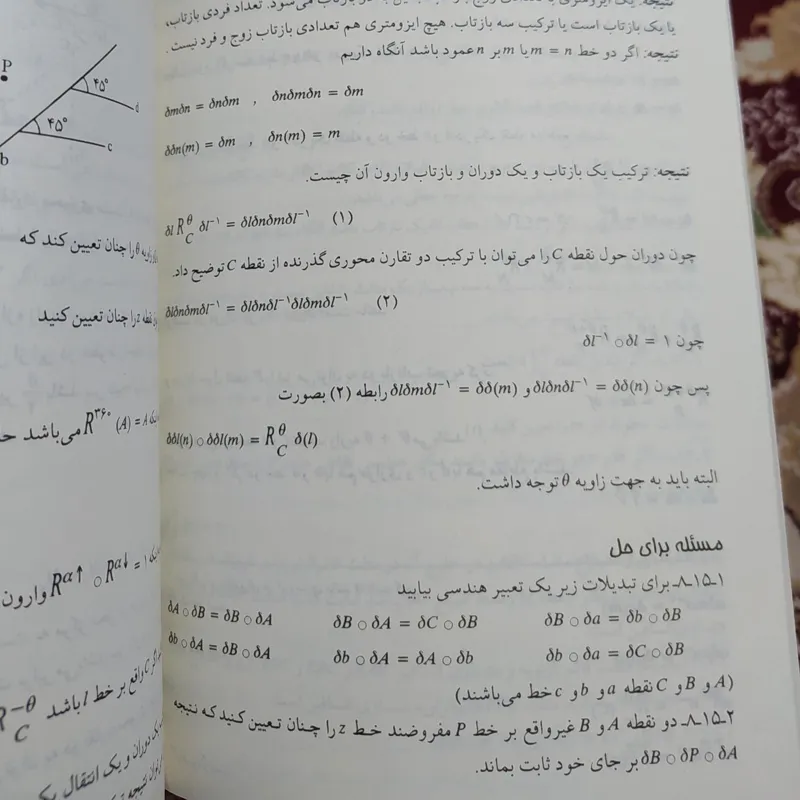 نتیجه: یک ایزومتری با تعدادی زوج بازتاب
می‌شود. تعداد فردی بازتاب،
یا یک بازتاب است یا ترکیب سه بازتاب. هیچ ایزومتری هم تعدادی بازتاب زوج و فرد نیست.
نتیجه: اگر دو خط m = n یا m بر n عمود باشد آنگاه داریم
δmδn = δnδm , δnδmδn = δm
δδn(m) = δm , δn(m) = m
نتیجه: ترکیب یک بازتاب و یک دوران و بازتاب وارون آن چیست.
δl R_C^θ δl⁻¹ = δlδnδmδl⁻¹ (۱)
چون دوران حول نقطه C را می‌توان با ترکیب دو تقارن محوری گذرنده از نقطه C توضیح داد.
δlδnδmδl⁻¹ = δlδnδl⁻¹δlδmδl⁻¹ (۲)
چون δl⁻¹ ○ δl = ۱
پس چون δlδnδl⁻¹ = δδ(n) و δlδmδl⁻¹ = δδ(m) رابطه (۲) بصورت
δδl(n) ○ δδl(m) = R_C^θ δ(l)
البته باید به جهت زاویه θ توجه داشت.
مسئله برای حل
۸ـ۱۵ـ۱ برای تبدیلات زیر یک تعبیر هندسی بیابید
δA ○ δB = δB ○ δA δB ○ δA = δC ○ δB δB ○ δa = δb ○ δB
δb ○ δA = δB ○ δA δb ○ δA = δA ○ δb δb ○ δa = δC ○ δB
(A و B و C نقطه a و b و c خط می‌باشند)
۸ـ۱۵ـ۲ دو نقطه A و B غیرواقع بر خط P مفروضند خط z را چنان تعیین کنید که نتیجه
δB ○ δP ○ δA بر جای خود ثابت بماند.
P
۴۵°
d
۴۵°
c
b
زاویه θ را چنان تعیین کند که
نقطه z را چنان تعیین کنید
R^۳۶۰ (A) = A می‌باشد
R^α↑ ○ R^α↓ = ۱ وارون
C واقع بر خط l باشد R_C^−θ
دوران و یک انتقال یک